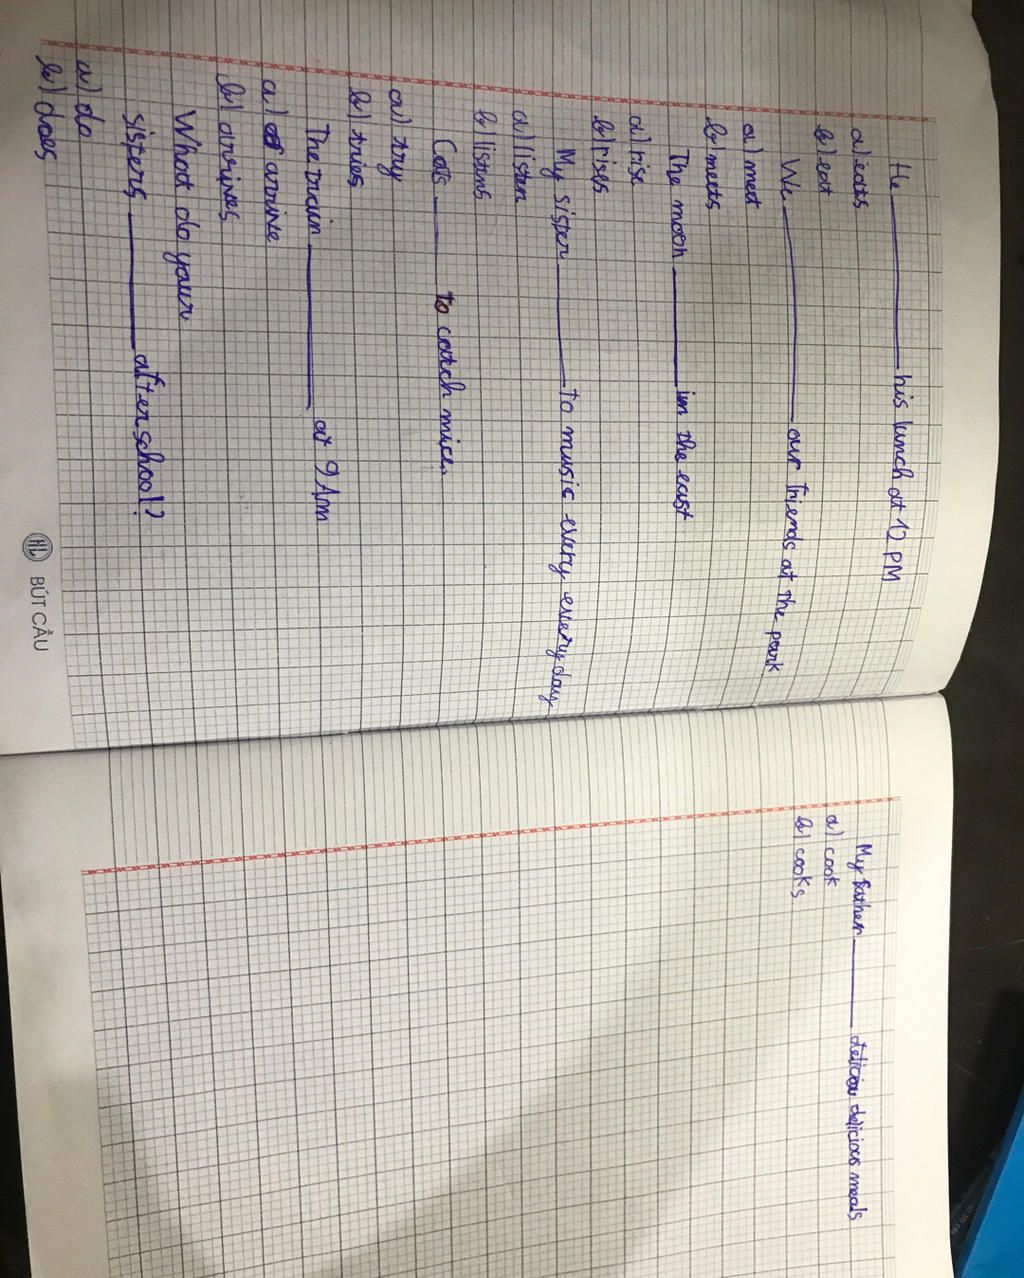 He ______ his lunch at 12 PM
a) eats
b) eat
We ______ our friends at the park
a) meet
b) meets
The moon ______ in the east
a) rise
b) rises
My sister ______ to music every every day
a) listen
b) listens
Cats ______ to catch mice.
a) try
b) tries
The train ______ at 9 Am
a) arrive
b) arrives
What do your
sisters ______ after school?
a) do
b) does
BÚT CẦU
My father ______ deliciou delicious meals
a) cook
b) cooks